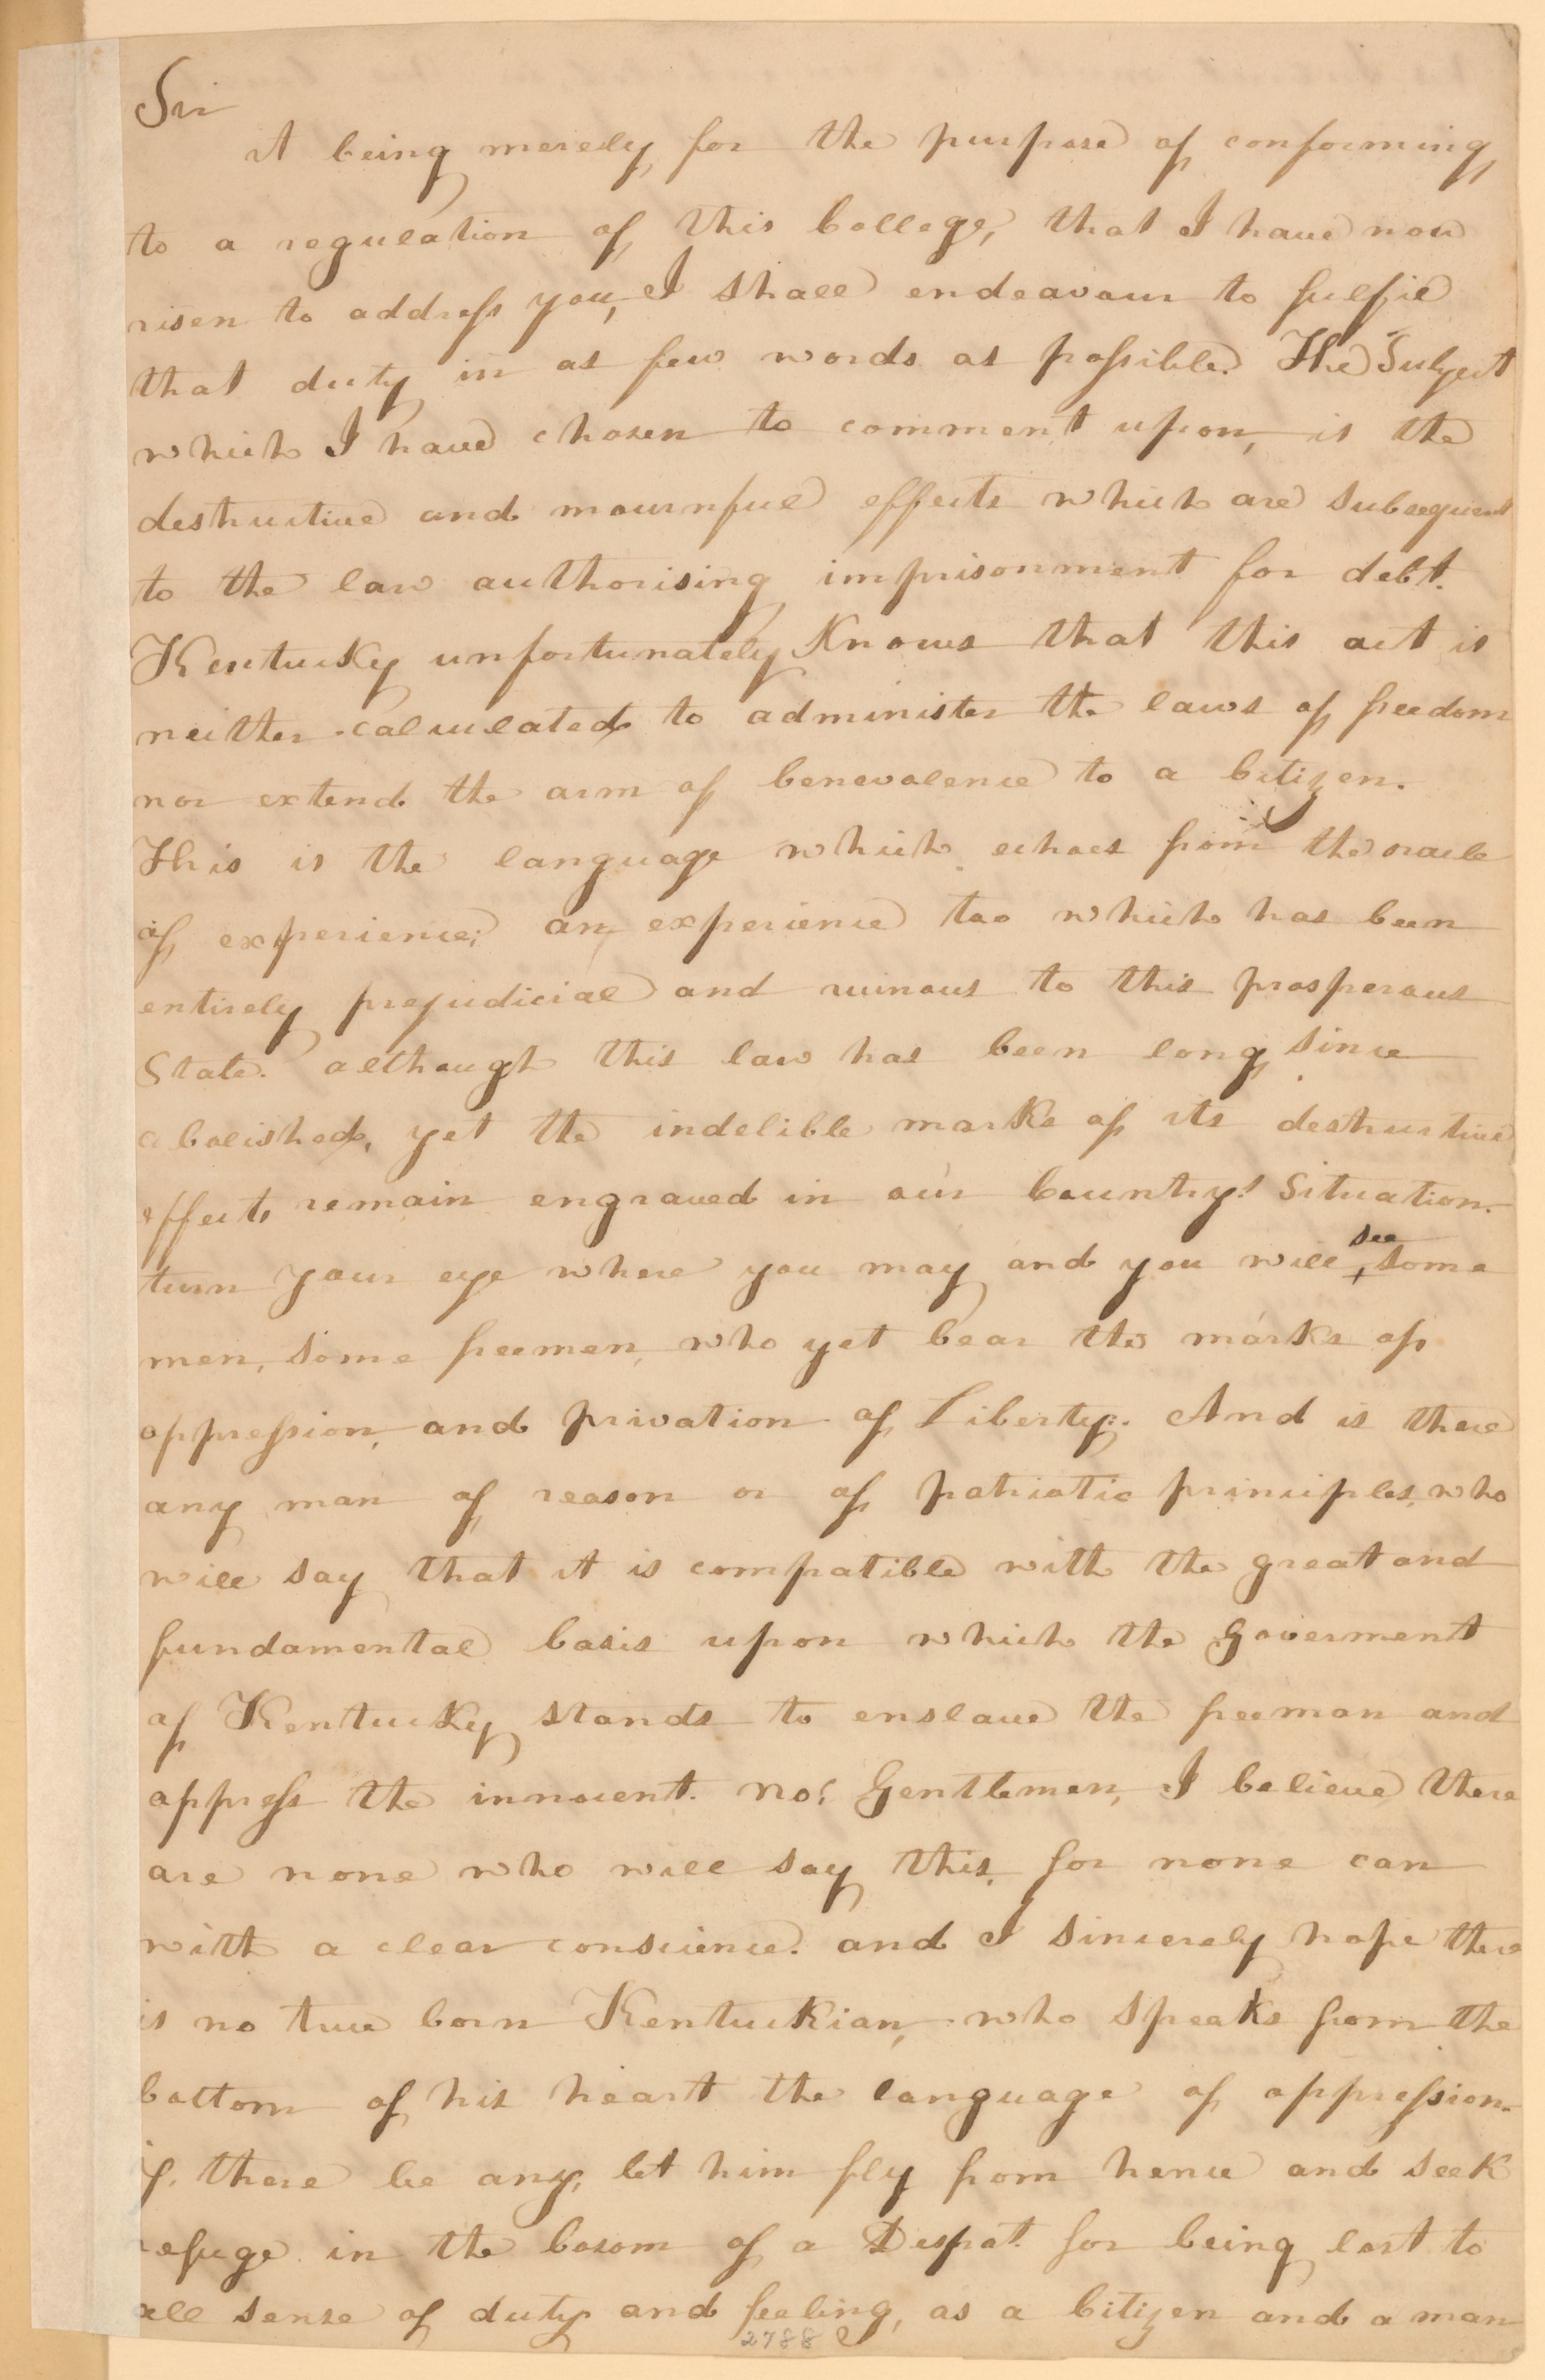 Sir
It being merely for the purpose of conforming
to a regulation of this College, that I have now
risen to address you, I shall endeavour to fulfil
that duty in as few words as possible. The Subject
which I have chosen to comment upon, is the
destructive and mournful effects which are subsequent
to the law authorising imprisonment for debt.
Kentucky unfortunately knows that this act is
neither calculated to administer the laws of freedom
nor extend the arm of benevolence to a Citizen.
This is the language which echoes from the oracle
of experience; an experience too which has been
entirely prejudicial and ruinous to this prosperous
State. although this law has been long since
abolished, yet the indelible marks of its destructive
effects remain engraved in our Country's Situation.
turn your eye where you may and you will see some
men, some freemen, who yet bear the marks of
oppression, and privation of Liberty. And is there
any man of reason or of patriotic principles, who
will say that it is compatible with the great and
fundamental basis upon which the Goverment
of Kentucky stands to enslave the freeman and
oppress the innocent. no! Gentlemen, I believe there
are none who will say this, for none can
with a clear conscience. and I sincerely hope there
is no true born Kentuckian, who speaks from the
bottom of his heart the language of oppression.
if there be any, let him fly from hence and seek
refuge in the bosom of a Despot. for being lost to
all sense of duty and feeling, as a Citizen and a man
2788